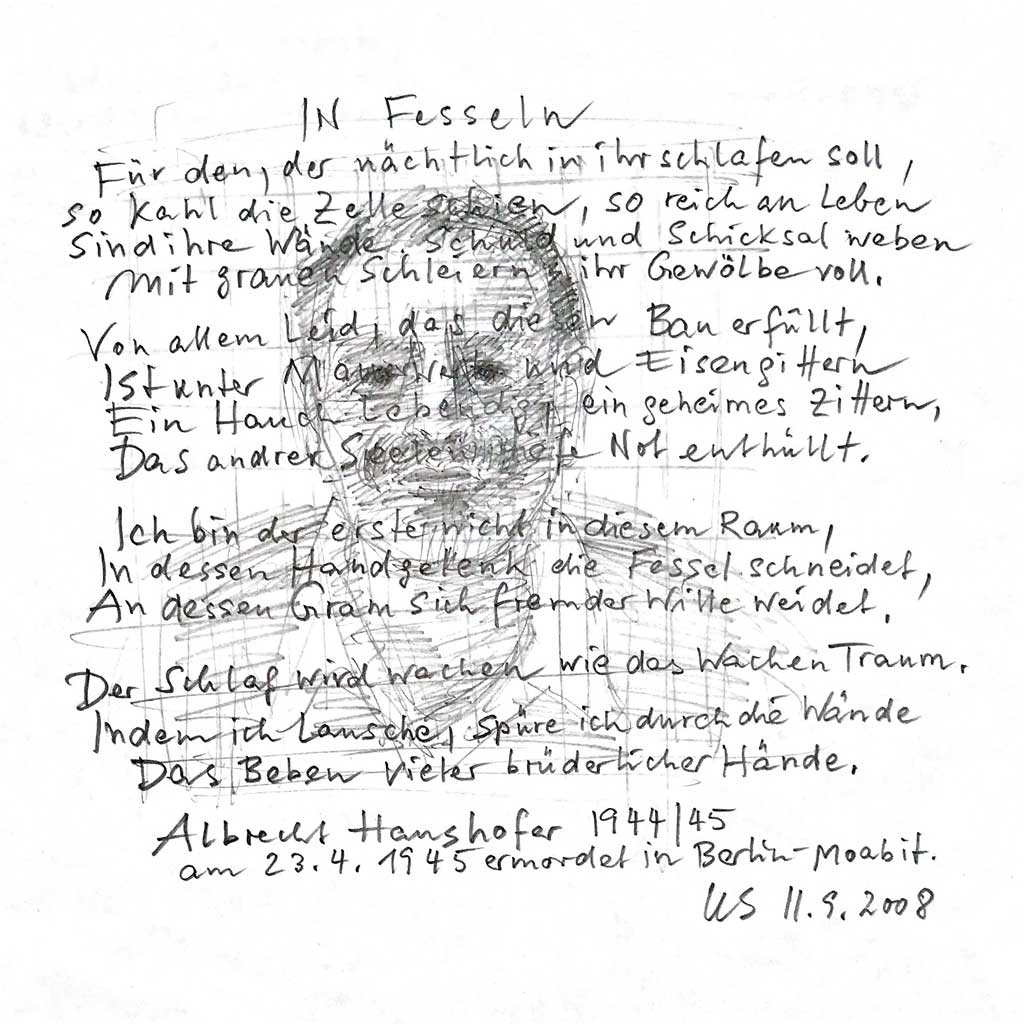 IN Fesseln
Für den, der nächtlich in ihr schlafen soll,
so kahl die Zelle schien, so reich an Leben
Sind ihre Wände. Schuld und Schicksal weben
Mit grauen Schleiern ihr Gewölbe voll.
Von allem Leid, das diesen Bau erfüllt,
Ist unter Mauerwerk und Eisengittern
Ein Hauch Lebendig, ein geheimes Zittern,
Das andrer Seelen tiefe Not enthüllt.
Ich bin der erste nicht in diesem Raum,
In dessen Handgelenk die Fessel schneidet,
An dessen Gram sich fremder Wille weidet.
Der Schlaf wird Wachen wie das Wachen Traum.
Indem ich Lausche, spüre ich durch die Wände
Das Beben vieler brüderlicher Hände.
Albrecht Haushofer 1944/45
am 23.4.1945 ermordet in Berlin-Moabit.
US 11.9.2008